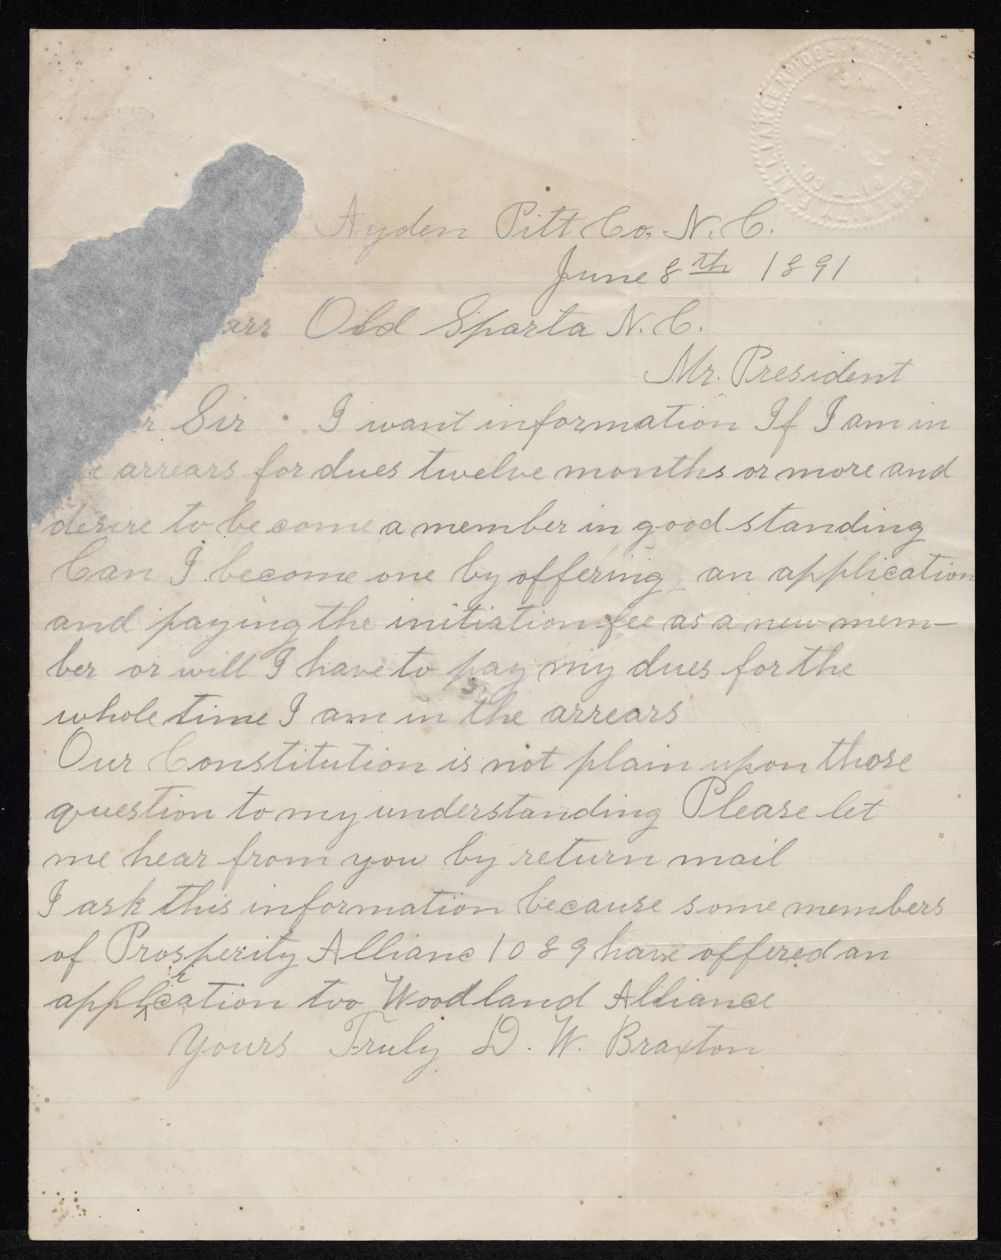 ALLIANCE No 1089
PROSPERITY
PITT CO.
Ayden Pitt Co. N. C.
June 8th 1891
arr Old Sparta N. C.
Mr. President
r Sir I want information If I am in
arrears for dues twelve months or more and
desire to become a member in good standing
Can I become one by offering an application
and paying the initiation fee as a new mem-
ber or will I have to pay my dues for the
whole time I am in the arrears
Our Constitution is not plain upon those
question to my understanding Please let
me hear from you by return mail
I ask this information because some members
of Prosperity Allianc 1089 have offered an
application too Woodland Alliance
Yours Truly D. W. Braxton